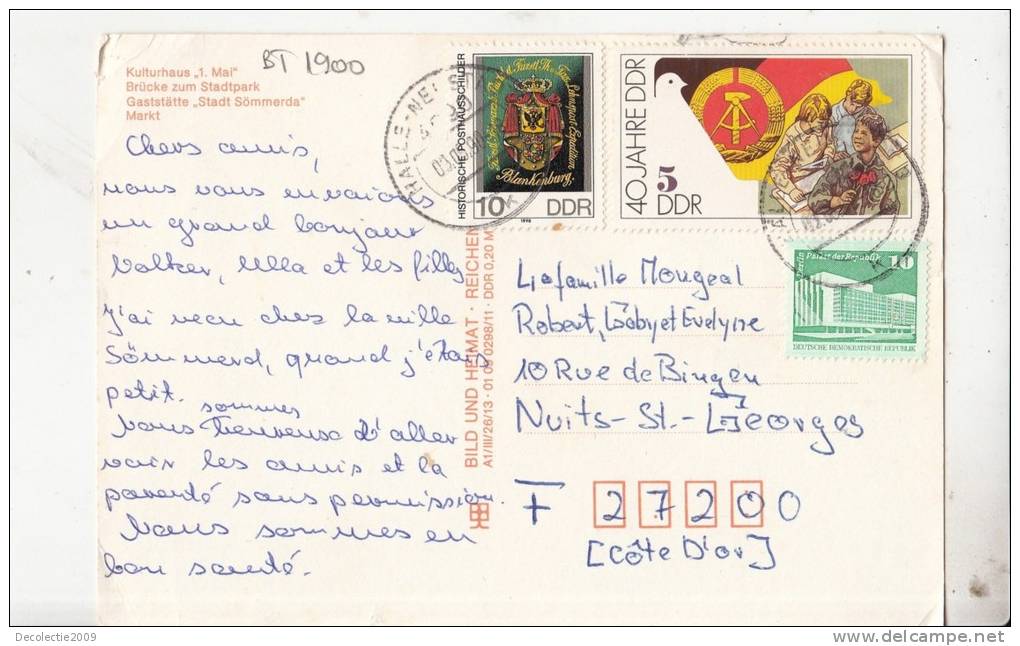 Kulturhaus „1. Mai“
Brücke zum Stadtpark
Gaststätte „Stadt Sömmerda“
Markt
BT 1900
Chers amis,
nous vous envoions
un grand bonjour
Volker, Ulla et les filles
J'ai vecu ches la ville
Sömmerd, quand j'étais
petit.
sommes
Nous heureuse d'aller
voir les amis et la
parenté sans permission.
Nous sommes en
bon santé.
BILD UND HEIMAT · REICHEN
A1/III/26/13 · 01 09 0298/11 · DDR 0,20 M
HISTORISCHE POSTHAUSSCHILDER
Blankenburg
10 DDR
1990
HALLE-NEU
40 JAHRE DDR
5
DDR
Berlin Palast der Republik 10
DEUTSCHE DEMOKRATISCHE REPUBLIK
La famille Mougeal
Robert, Gaby et Evelyne
10 Rue de Bingen
Nuits-St.-Georges
F 27200
[Côte D'or]
Decolectie2009
delcampe.net